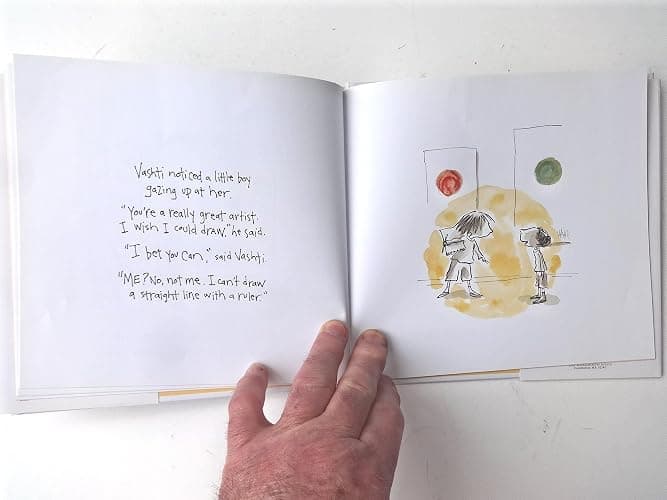 Vashti noticed a little boy
gazing up at her.
"You're a really great artist.
I wish I could draw," he said.
"I bet you can," said Vashti.
"ME? No, not me. I can't draw
a straight line with a ruler."